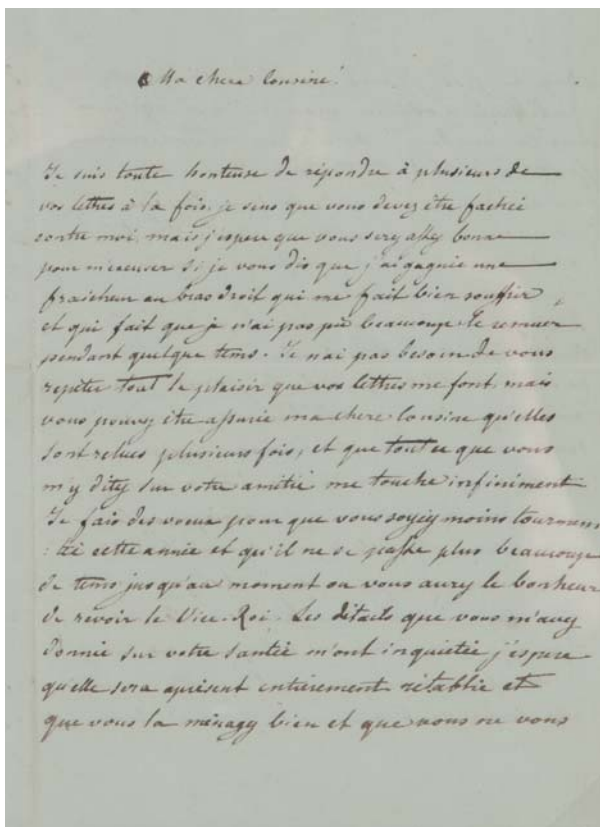 Ma chere Cousine!
Je suis toute honteuse de répondre à plusieurs de
vos lettres à la fois, je sens que vous devez être fachée
contre moi, mais j'espere que vous serez assez bonne
pour m'excuser si je vous dis que j'ai gagnie une
fraicheur au bras droit qui me fait bien souffrir,
et qui fait que je n'ai pas pu beaucoup le remuer
pendant quelque tems. Je n'ai pas besoin de vous
repeter tout le plaisir que vos lettres me font mais
vous pouvez être assurée ma chere Cousine qu'elles
sont relues plusieurs fois, et que tout ce que vous
m'y dites sur votre amitié me touche infiniment
Je fais des voeux pour que vous soyiez moins tourmen
:tée cette année et qu'il ne se passe plus beaucoup
de tems jusqu'au moment ou vous aurez le bonheur
de revoir le Vice-Roi. Les détails que vous m'avez
donnée sur votre santée m'ont inquietée j'espere
qu'elle sera apresent entièrement rétablie et
que vous la ménagez bien et que vous ne vous